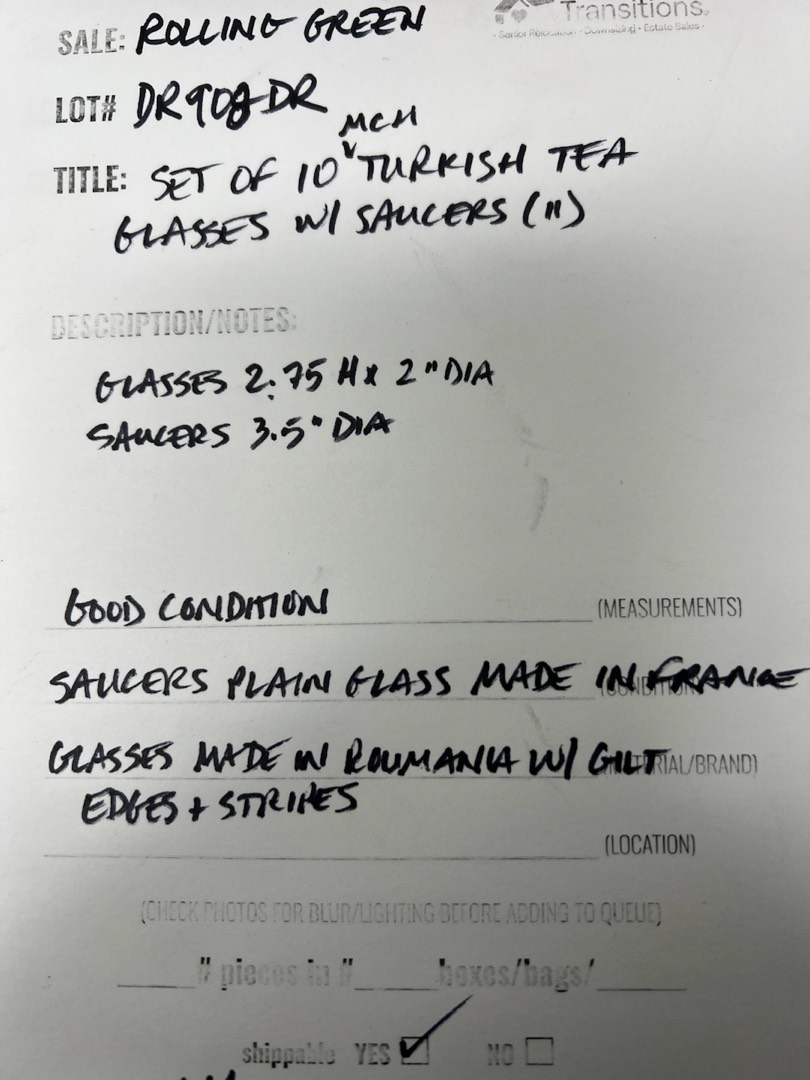 Transitions.
· Senior Relocation · Downsizing · Estate Sales ·
SALE: ROLLING GREEN
LOT# DR908-DR
MCM
TITLE: SET OF 10 TURKISH TEA
GLASSES W/ SAUCERS (11)
DESCRIPTION/NOTES:
GLASSES 2.75 H x 2" DIA
SAUCERS 3.5" DIA
GOOD CONDITION (MEASUREMENTS)
SAUCERS PLAIN GLASS MADE IN FRANCE (CONDITION)
GLASSES MADE IN ROUMANIA W/ GILT RIAL/BRAND)
EDGES + STRIPES
(LOCATION)
(CHECK PHOTOS FOR BLUR/LIGHTING BEFORE ADDING TO QUEUE)
# pieces in # boxes/bags/
shippable YES ✓ NO